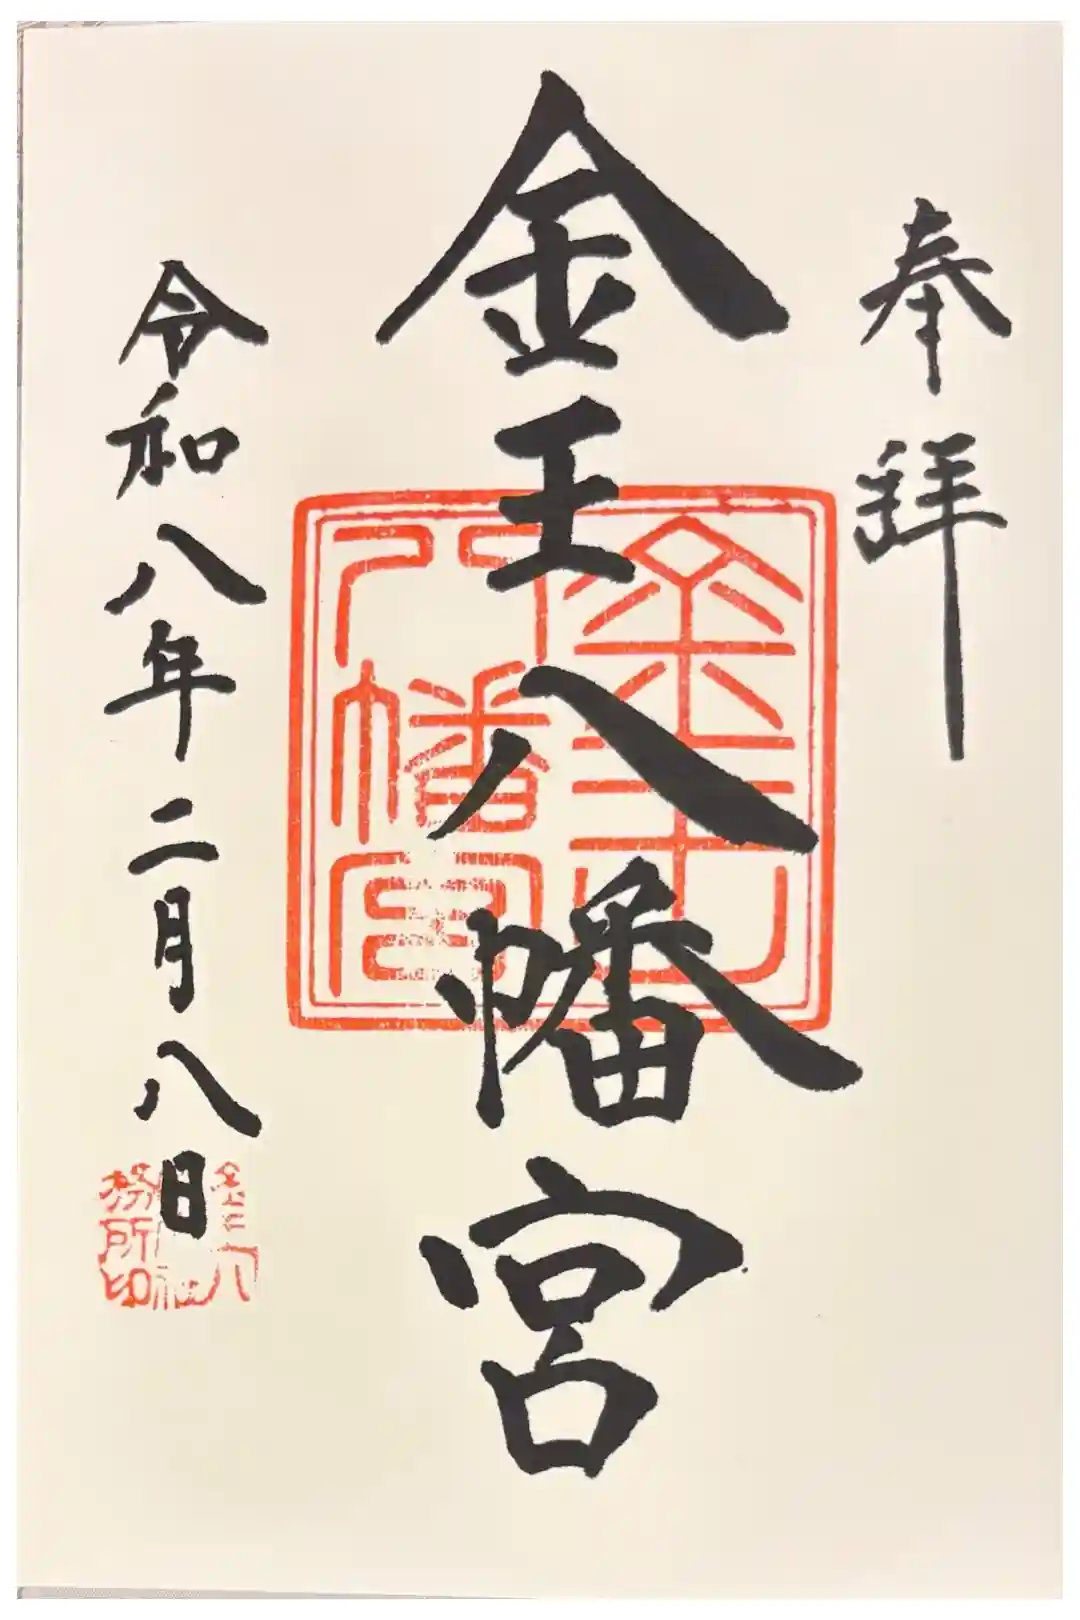 奉拝
金王八幡宮
金王八幡宮
令和八年二月八日
務所印